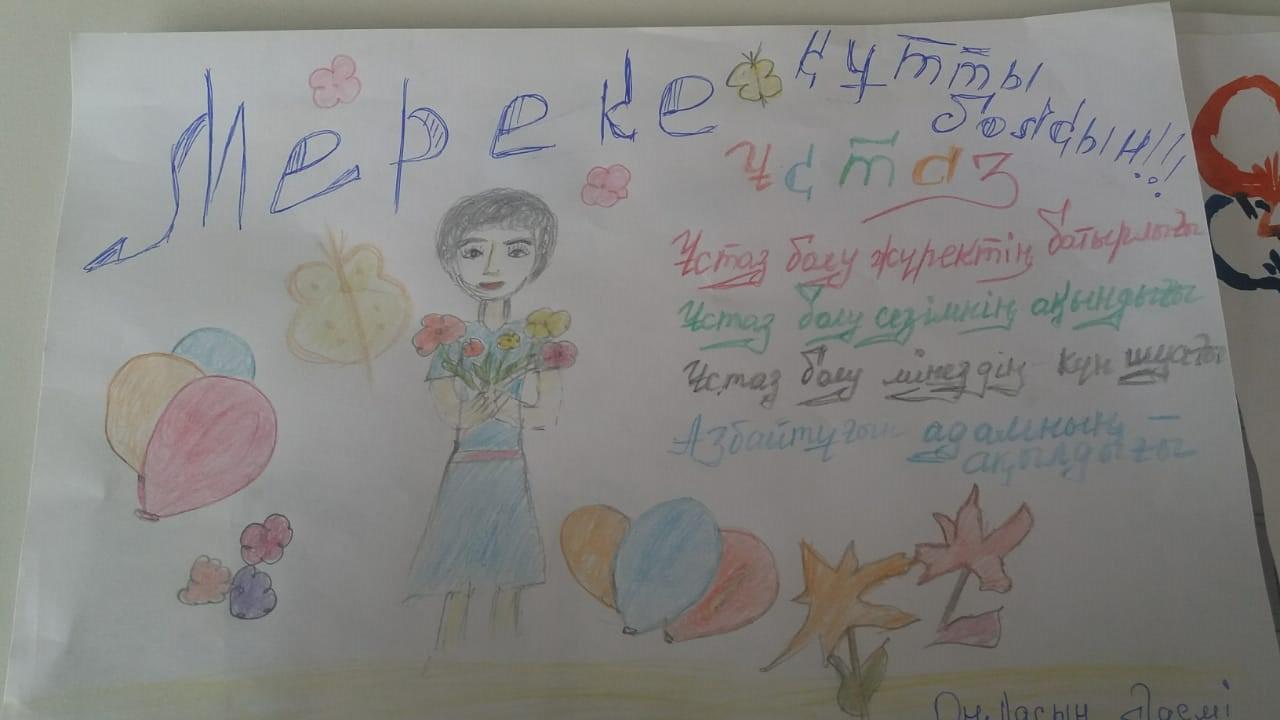 Мереке құтты
болсын!!!
Ұстаз
Ұстаз болу жүректің батырлығы
Ұстаз болу сезімнің ақындығы
Ұстаз болу мінездің күн шуағы
Азбайтұғын адамның –
ақылдығы